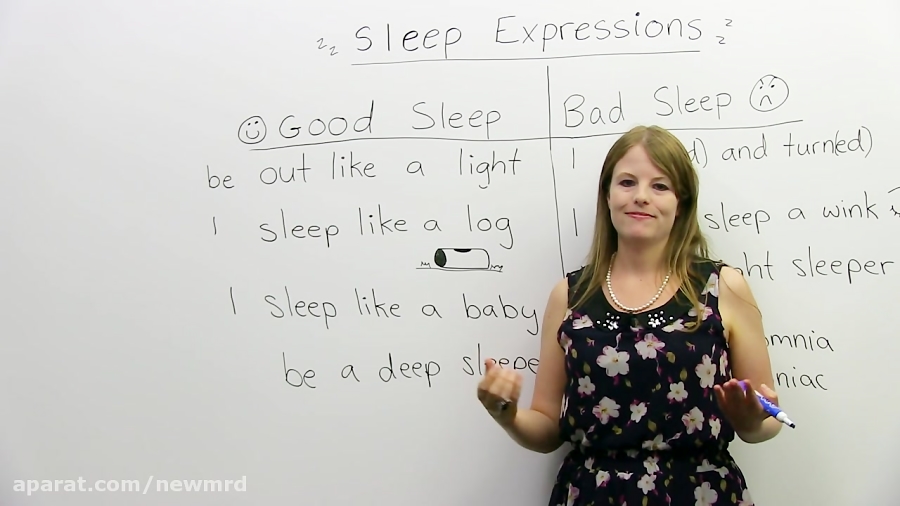 zz Sleep Expressions zzz
Good Sleep
be out like a light
I sleep like a log
I sleep like a baby
be a deep
Bad Sleep
I and turn(ed)
I sleep a wink
sleeper
aparat.com/newmrd